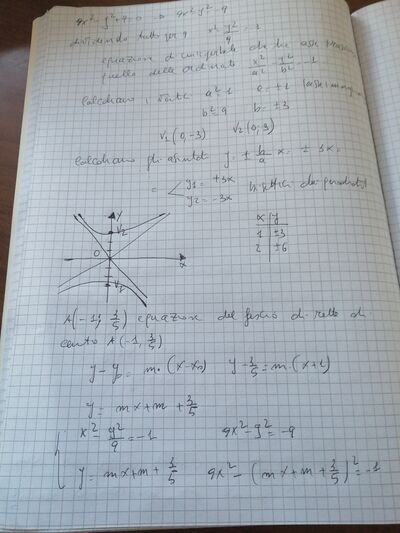 9x² - y² + 9 = 0 → 9x² - y² = -9
dividendo tutto per 9 x² - y²/9 = -1
equazione di un'iperbole che ha asse
quello delle ordinate x²/a² - y²/b² = -1
Calcoliamo i vertici a² = 1 a = ±1 (asse
b² = 9 b = ±3
V₁(0, -3) V₂(0, 3)
Calcoliamo gli asintoti y = ± b/a x = ± 3x =
= y₁ = +3x
y₂ = -3x bisettrici dei quadranti
y
V₂
O
x
V₁
x y
1 ±3
2 ±6
A(-1; 3/5) equazione del fascio di rette di
centro A(-1, 3/5)
y - y₀ = m·(x - x₀) y - 3/5 = m·(x + 1)
y = mx + m + 3/5
x² - y²/9 = -1 9x² - y² = -9
y = mx + m + 3/5 9x² - (mx + m + 3/5)² = -1